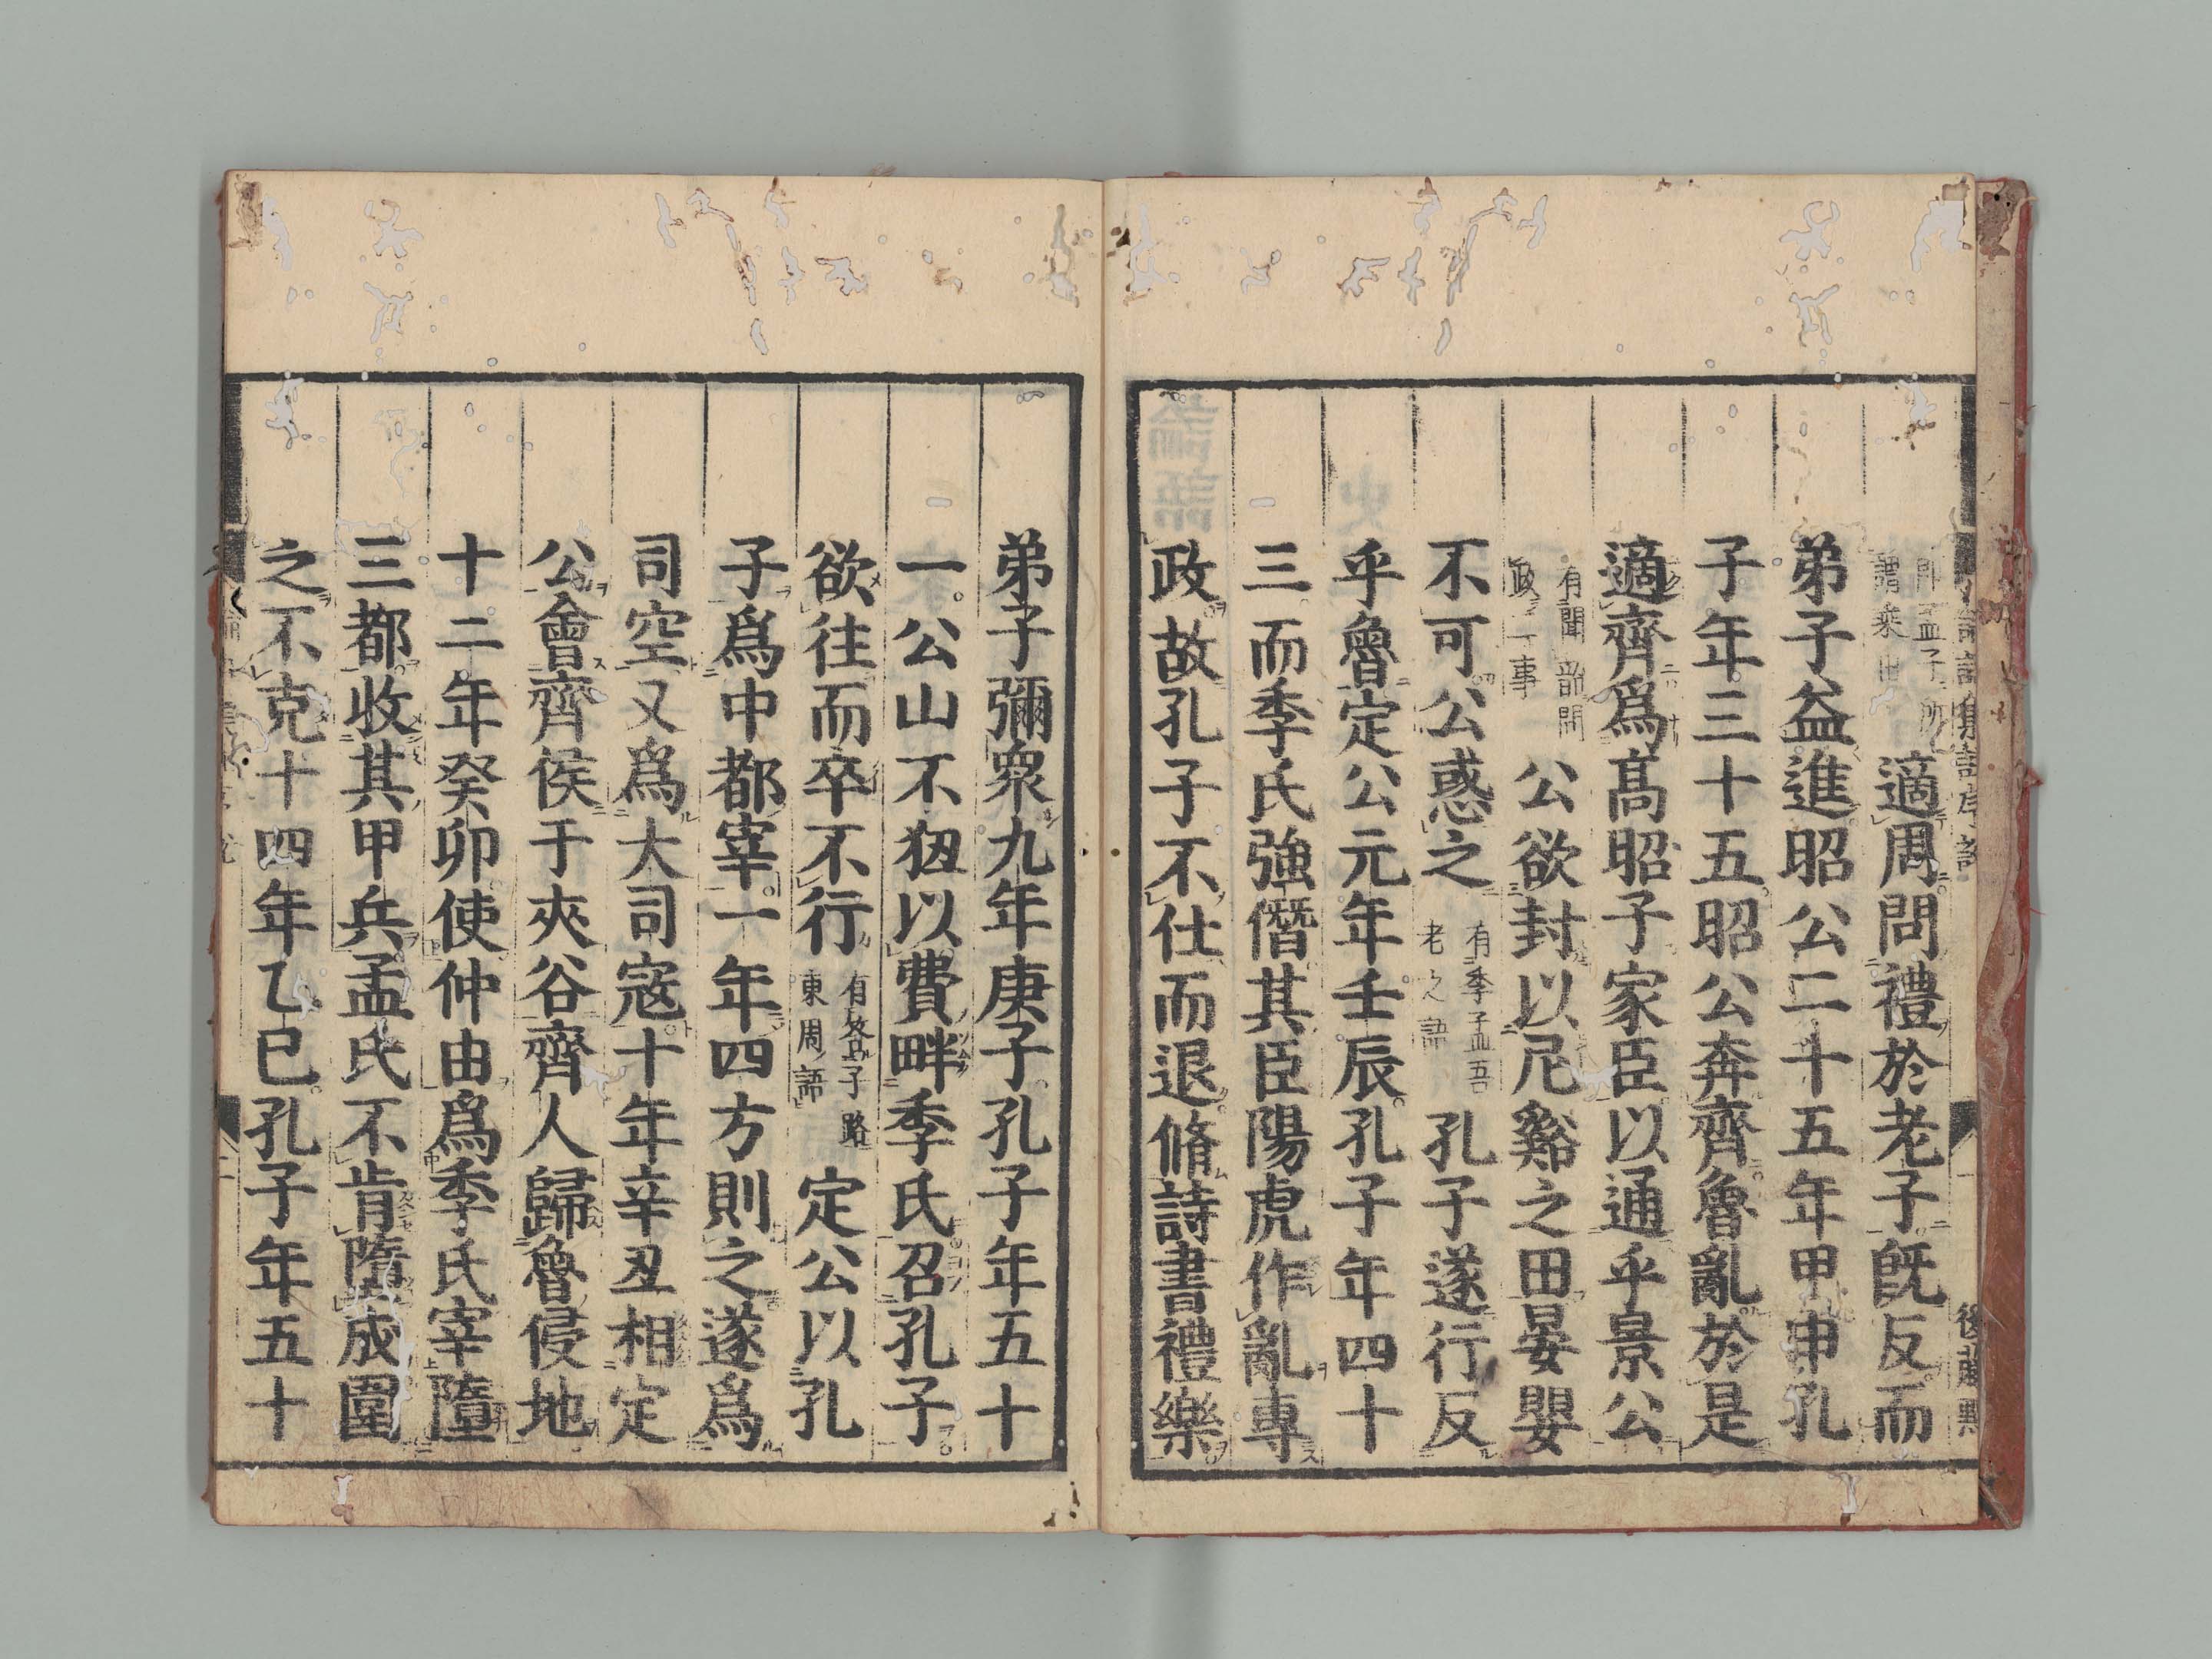 即孟子所
謂乘田
適周問禮於老子旣反而
弟子益進昭公二十五年甲申孔
子年三十五昭公奔齊魯亂於是
適齊爲髙昭子家臣以通乎景公
有聞韶問
政二事
公欲封以尼谿之田晏嬰
不可公惑之
有季孟吾
老之語
孔子遂行反
乎魯定公元年壬辰孔子年四十
三而季氏強僭其臣陽虎作亂專
政故孔子不仕而退脩詩書禮樂
弟子彌衆九年庚子孔子年五十
一公山不狃以費畔季氏召孔子
欲往而卒不行
有答子路
東周語
定公以孔
子爲中都宰一年四方則之遂爲
司空又爲大司寇十年辛丑相定
公會齊侯于夾谷齊人歸魯侵地
十二年癸卯使仲由爲季氏宰隳
三都收其甲兵孟氏不肯隳成圍
之不克十四年乙巳孔子年五十